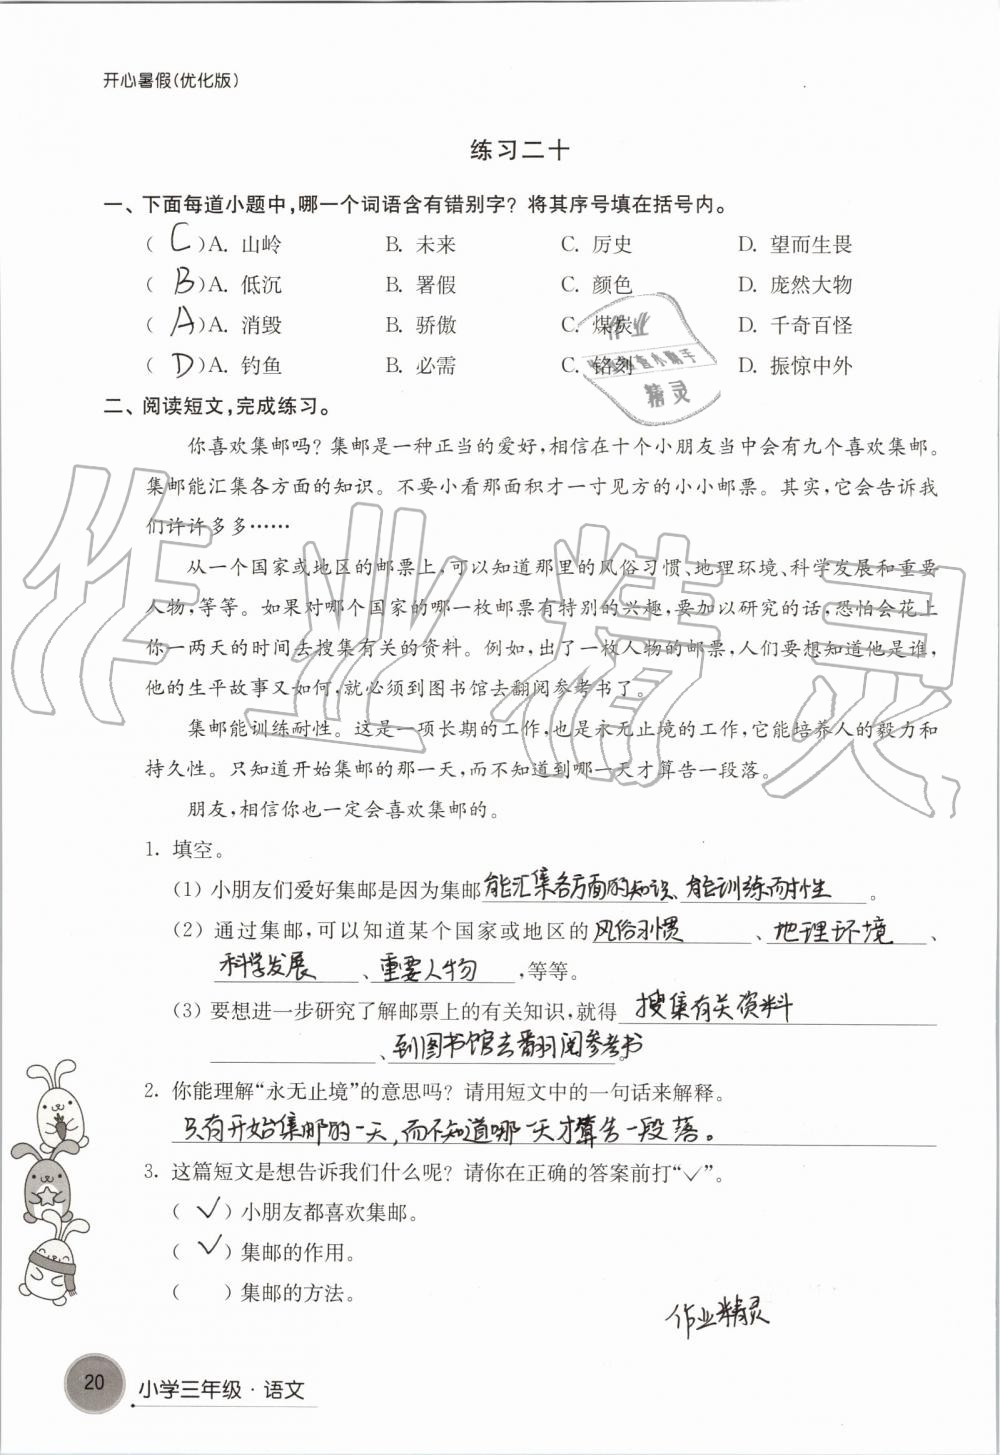 开心暑假(优化版)
练习二十
一、下面每道小题中,哪一个词语含有错别字? 将其序号填在括号内。
( C )A. 山岭 B. 未来 C. 厉史 D. 望而生畏
( B )A. 低沉 B. 署假 C. 颜色 D. 庞然大物
( A )A. 消毁 B. 骄傲 C. 煤炭 D. 千奇百怪
( D )A. 钓鱼 B. 必需 C. 铭刻 D. 振惊中外
二、阅读短文,完成练习。
你喜欢集邮吗? 集邮是一种正当的爱好,相信在十个小朋友当中会有九个喜欢集邮。
集邮能汇集各方面的知识。不要小看那面积才一寸见方的小小邮票。其实,它会告诉我
们许许多多……
从一个国家或地区的邮票上,可以知道那里的风俗习惯、地理环境、科学发展和重要
人物,等等。如果对哪个国家的哪一枚邮票有特别的兴趣,要加以研究的话,恐怕会花上
你一两天的时间去搜集有关的资料。例如,出了一枚人物的邮票,人们要想知道他是谁,
他的生平故事又如何,就必须到图书馆去翻阅参考书了。
集邮能训练耐性。这是一项长期的工作,也是永无止境的工作,它能培养人的毅力和
持久性。只知道开始集邮的那一天,而不知道到哪一天才算告一段落。
朋友,相信你也一定会喜欢集邮的。
1. 填空。
(1) 小朋友们爱好集邮是因为集邮能汇集各方面的知识、能训练耐性。
(2) 通过集邮,可以知道某个国家或地区的风俗习惯、地理环境、
科学发展、重要人物,等等。
(3) 要想进一步研究了解邮票上的有关知识,就得搜集有关资料
、到图书馆去翻阅参考书。
2. 你能理解“永无止境”的意思吗? 请用短文中的一句话来解释。
只有开始集邮的一天,而不知道哪一天才算告一段落。
3. 这篇短文是想告诉我们什么呢? 请你在正确的答案前打“✓”。
( ✓ )小朋友都喜欢集邮。
( ✓ )集邮的作用。
( )集邮的方法。
作业精灵
20
小学三年级·语文
作业精灵
作业
精灵